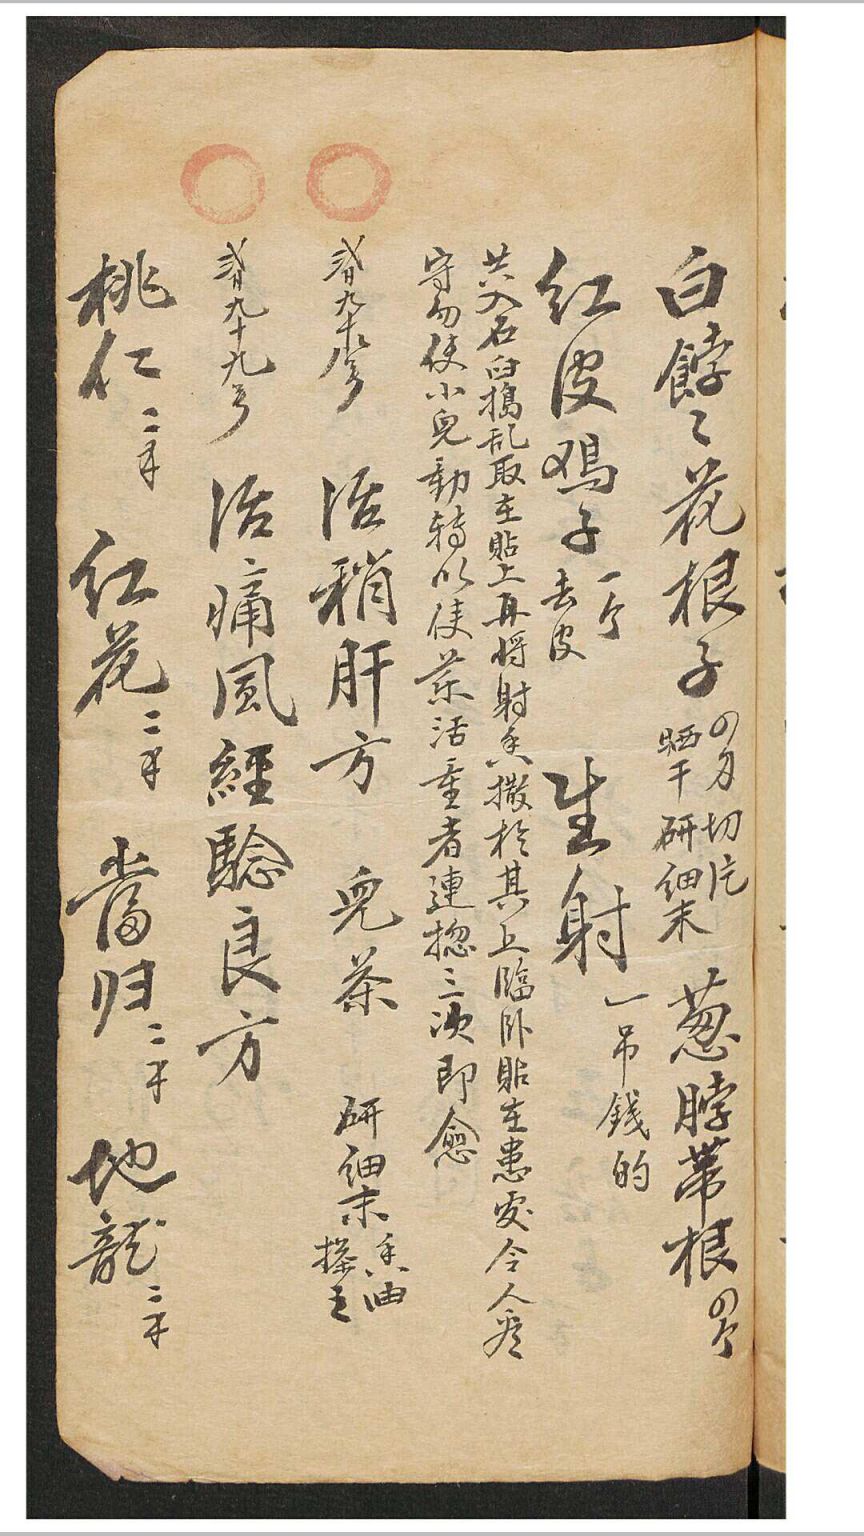 白餑々花根子 四刀切片 晒干研細末 葱脖帶根 四个
红皮鸡子 一个 去皮 生射 一吊錢的
共入石臼搗乱取在貼上再將射香撒於其上臨卧貼在患處令人
守勿使小兒動轉以使药活重者連摠三次即愈
貳百九十八号 治稍肝方 兒茶 研細末 香油搽之
貳百九十九号 治痛風經驗良方
桃仁 二 红花 二 當归 二 地龍 二